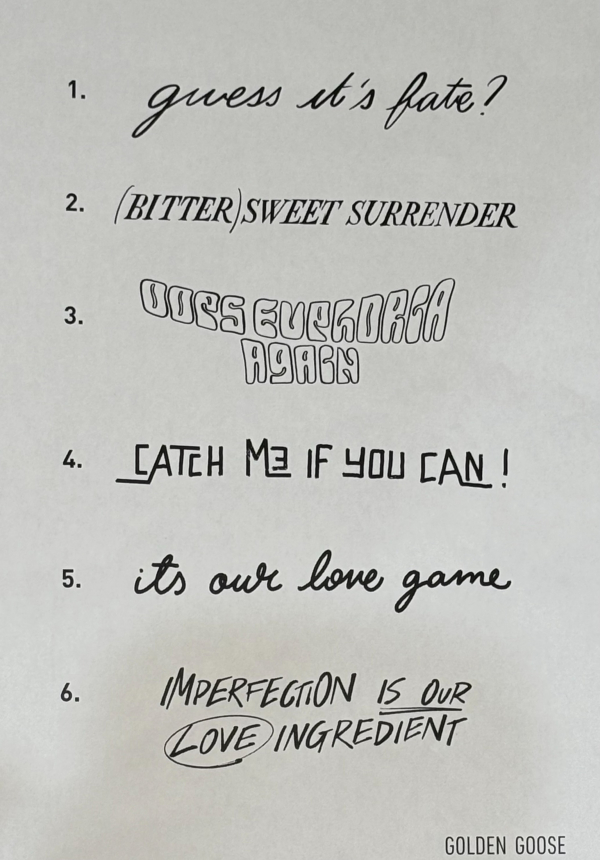 1. guess it's fate?
2. (BITTER)SWEET SURRENDER
3. OOPS EUPHORIA
AGAIN
4. CATCH ME IF YOU CAN!
5. its our love game
6. IMPERFECTION IS OUR
LOVE INGREDIENT
GOLDEN GOOSE